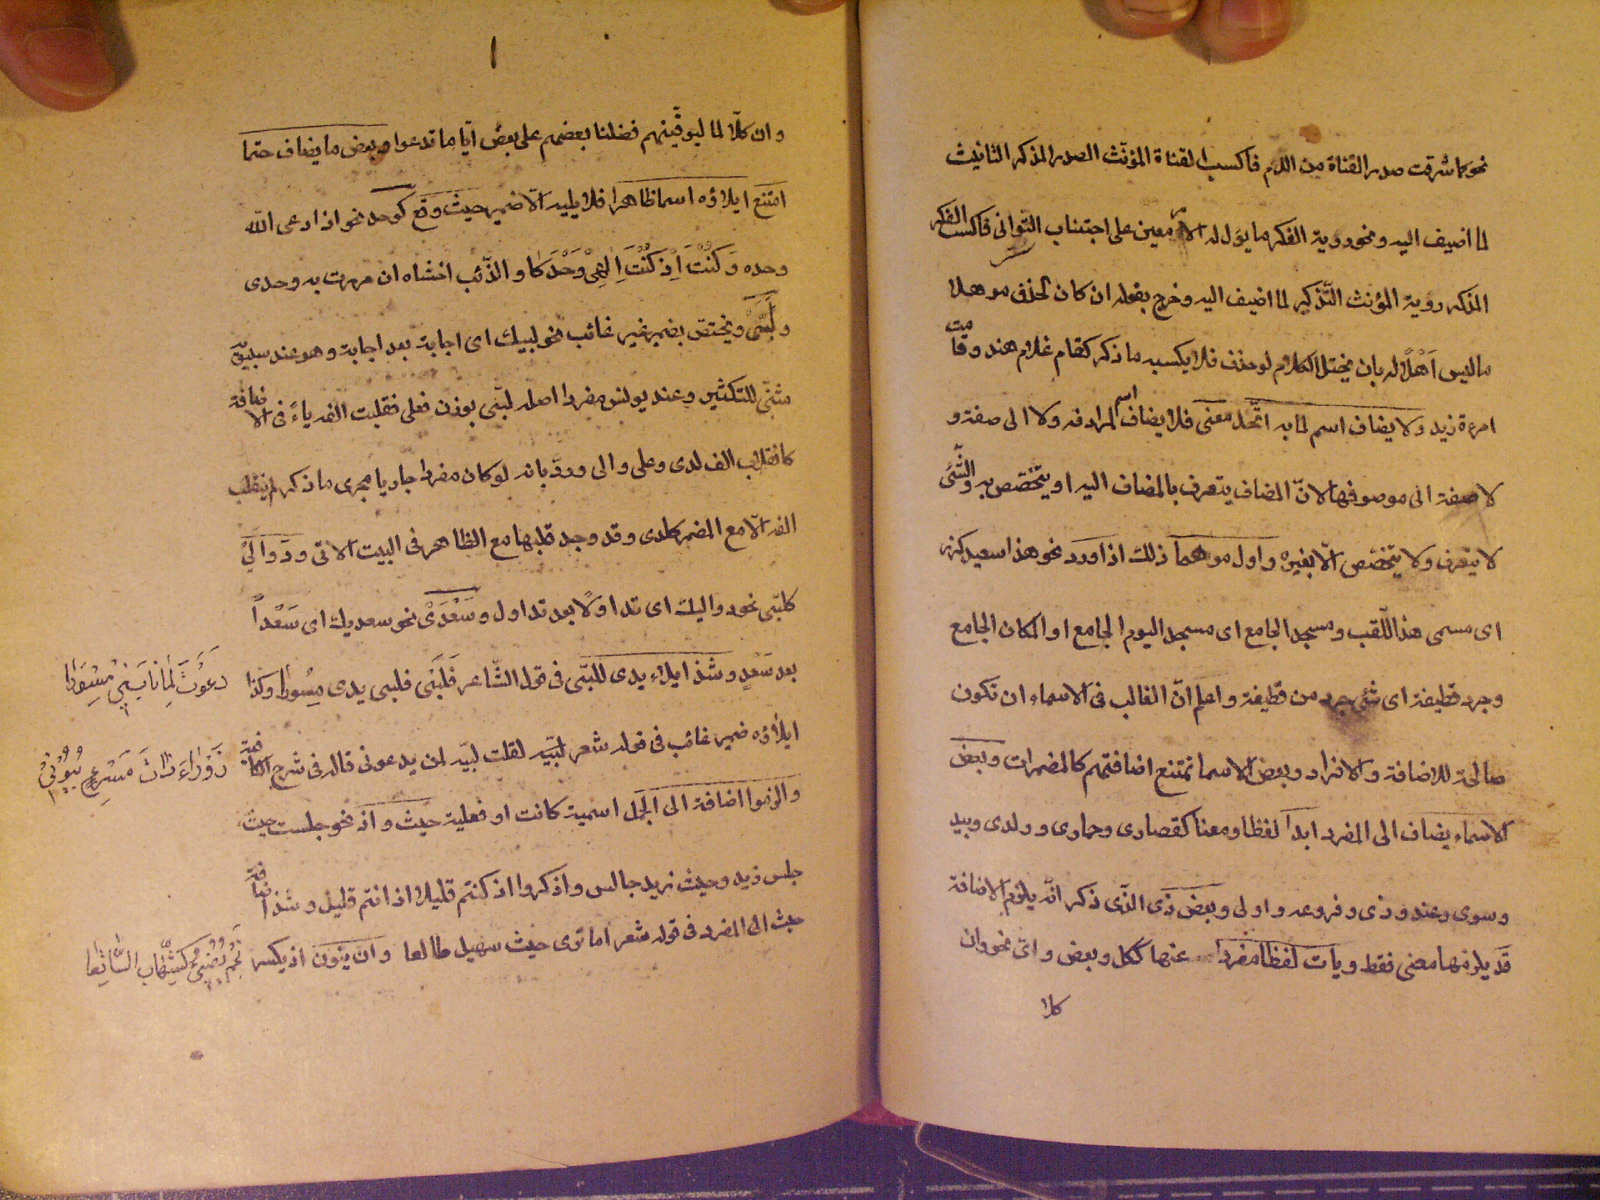 نحو كما شرقت صدر القناة من الدم فاكسب القناة المؤنّث الصدر المذكر التانيث
لما اضيف اليه ونحو روية الفكر ما يؤل له الامر معين على اجتناب التوانى فاكسب الفكر
المذكر روية المؤنث التّذكير لما اضيف اليه وخرج بقوله ان كان لحذف موهلا
ما ليس اَهْلًا له بان يختل الكلام لو حذف فلا يكسبه ما ذكر كقام غلام هند وقامت
امرءة زيد ولا يضاف اسم لما به اتّحد معنى فلا يضاف اسم لمرادفه ولا الى صفته و
لا صفة الى موصوفها لانّ المضاف يتعرف بالمضاف اليه او يتخصّص به والشّئ
لا يتعرف ولا يتخصّص الّا بغيره واول موهما ذلك اذا ورد نحو هذا سعيد كرز
اى مسمى هذا اللّقب ومسجد الجامع اى مسجد اليوم الجامع او المكان الجامع
وجرد قطيفة اى شئ جرد من قطيفة واعلم انّ الغالب فى الاسماء ان تكون
صالحة للاضافة والافراد وبعض الاسما تمتنع اضافتهم كالمضمرات وبعض
الاسماء يضاف الى المفرد ابدا لفظا ومعنا كقصارى وحمادى ولدى وبيد
وسوى وعند وذى وفروعه واولى وبعض ذى الذّى ذكر انّه يلزم الاضافة
قد يلزمها معنى فقط ويأت لفظا مفردا عنها ككل وبعض واى نحو وان
كلا
وان كلّا لما ليوفّينهم فضلنا بعضهم على بعض ايّا ما تدعوا وبعض ما يضاف حتما
امتنع ايلاؤه اسما ظاهرا فلا يليه الّا ضمير حيث وقع كوحد نحو اذا دعى الله
وحده وَكُنْتَ اِذْ كُنْتَ اِلٰهِىْ وَحْدَكا والذّئب اخشاه ان مررت به وحدى
ولَبَّىْ ويختصّ بضمير غير غائب نحو لبيك اى اجابة بعد اجابة وهو عند سيبويه
مثنّى للتكثير وعند يونس مفرد اصله لبّى بوزن فعلى فقلبت الفه ياءً فى الاضافة
كانقلاب الف لدى وعلى والى وردّ بانه لو كان مفردا جاريا مجرى ما ذكر لم ينقلب
الفه الّا مع المضمر كلدى وقد وجد قلبها مع الظاهر فى البيت الاتى ودَوَالَىْ
كلبّى نحو دواليك اى تداولًا بعد تداول وسَعْدَىْ نحو سعديك اى سَعْداً
بعد سَعْدٍ وشذ ايلاء يدى للبّى فى قول الشّاعر فَلَبّى فلبى يدى مِسْورا وكذا
دَعَوْتُ لِمَا نَابَنِىْ مِسْوَرًا
ايلاؤه ضمير غائب فى قوله شعر لبّيه لقلت لبّيه لمن يدعونى قاله فى شرح الكافية
زَوْرَاءَ ذَاتَ مَتْرَعٍ بُيُوْنِىْ
والزموا اضافة الى الجمل اسمية كانت او فعلية حيث واذ نحو جلست حيث
جلس زيد وحيث زيد جالس واذكروا اذ كنتم قليلا اذ انتم قليل وشذ اضافة
حيث الى المفرد فى قوله شعر اما ترى حيث سهيل طالعا وان ينون اذ يكسر
نَجْمٌ يُضِىْءُ كَالشِّهَابِ السَّاطِعَا